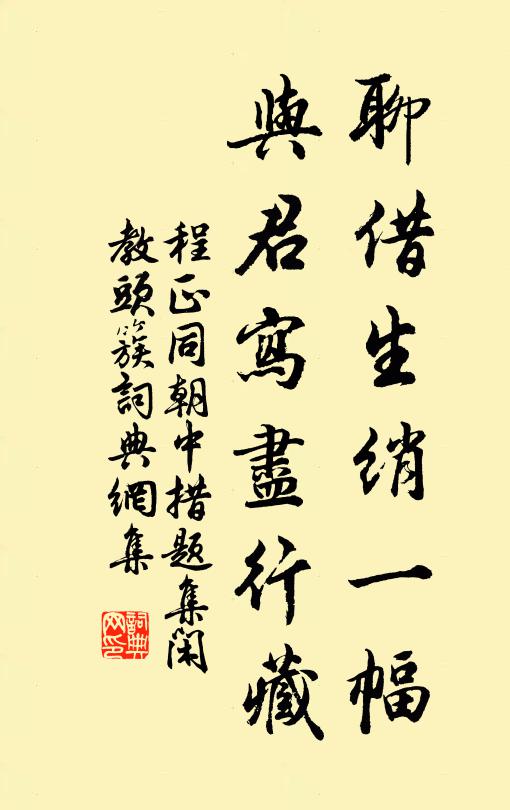 聊借生綃一幅
與君寫盡行藏
程正同朝中措題集閑
教頭簇詞典網集
詞典
网印